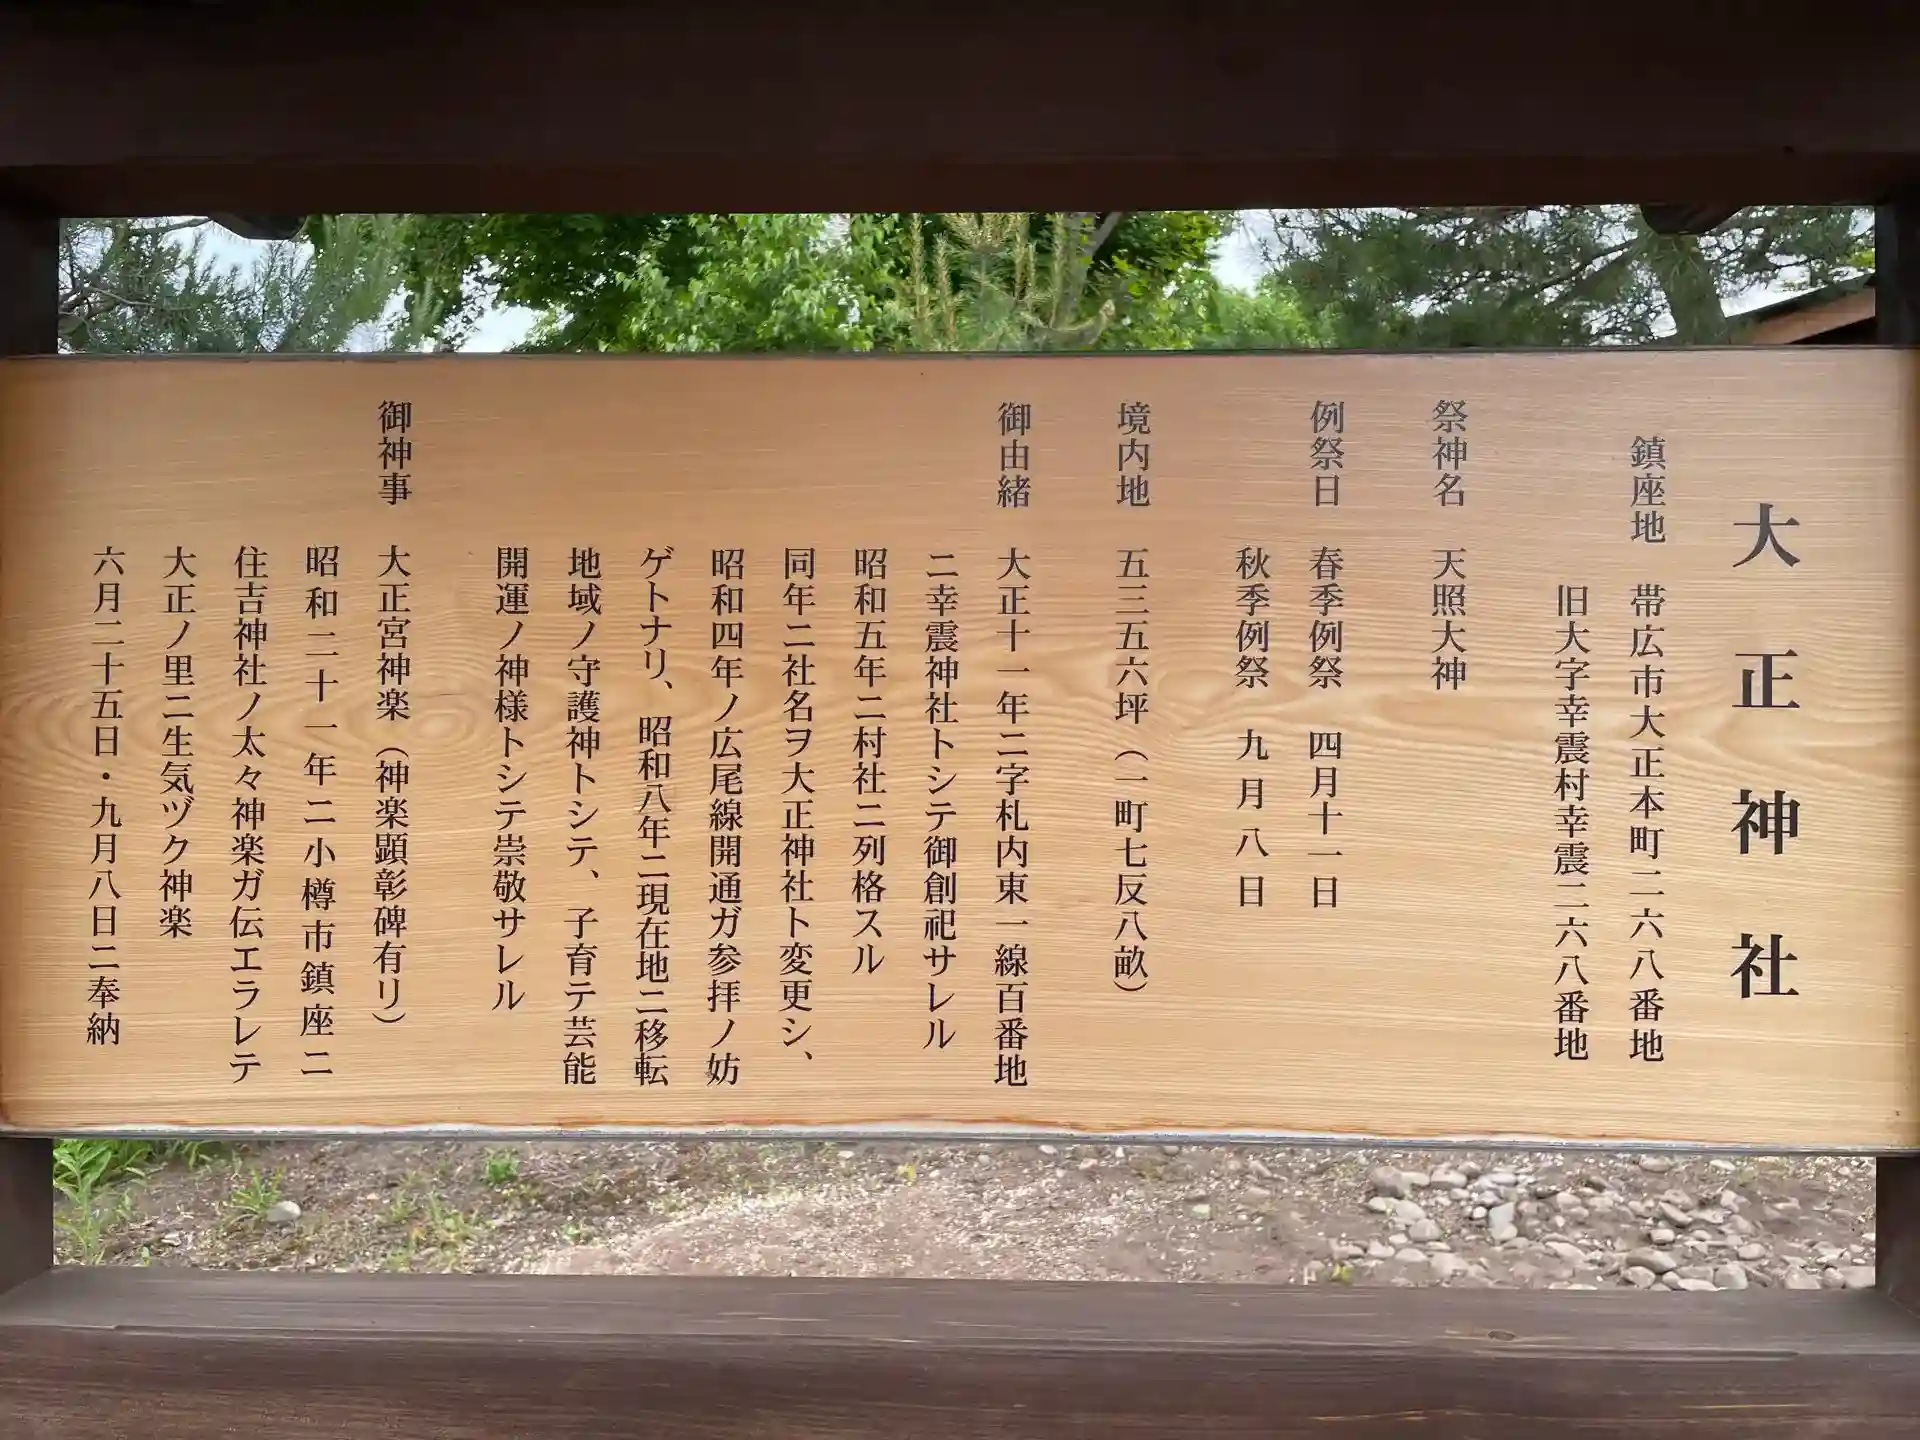 大正神社
鎮座地　帯広市大正本町二六八番地
旧大字幸震村幸震二六八番地
祭神名　天照大神
例祭日　春季例祭　四月十一日
秋季例祭　九月八日
境内地　五三五六坪（一町七反八畝）
御由緒　大正十一年ニ字札内東一線百番地
ニ幸震神社トシテ御創祀サレル
昭和五年ニ村社ニ列格スル
同年ニ社名ヲ大正神社ト変更シ、
昭和四年ノ広尾線開通ガ参拝ノ妨
ゲトナリ、昭和八年ニ現在地ニ移転
地域ノ守護神トシテ、子育テ芸能
開運ノ神様トシテ崇敬サレル
御神事　大正宮神楽（神楽顕彰碑有リ）
昭和二十一年ニ小樽市鎮座ニ
住吉神社ノ太々神楽ガ伝エラレテ
大正ノ里ニ生気ヅク神楽
六月二十五日・九月八日ニ奉納